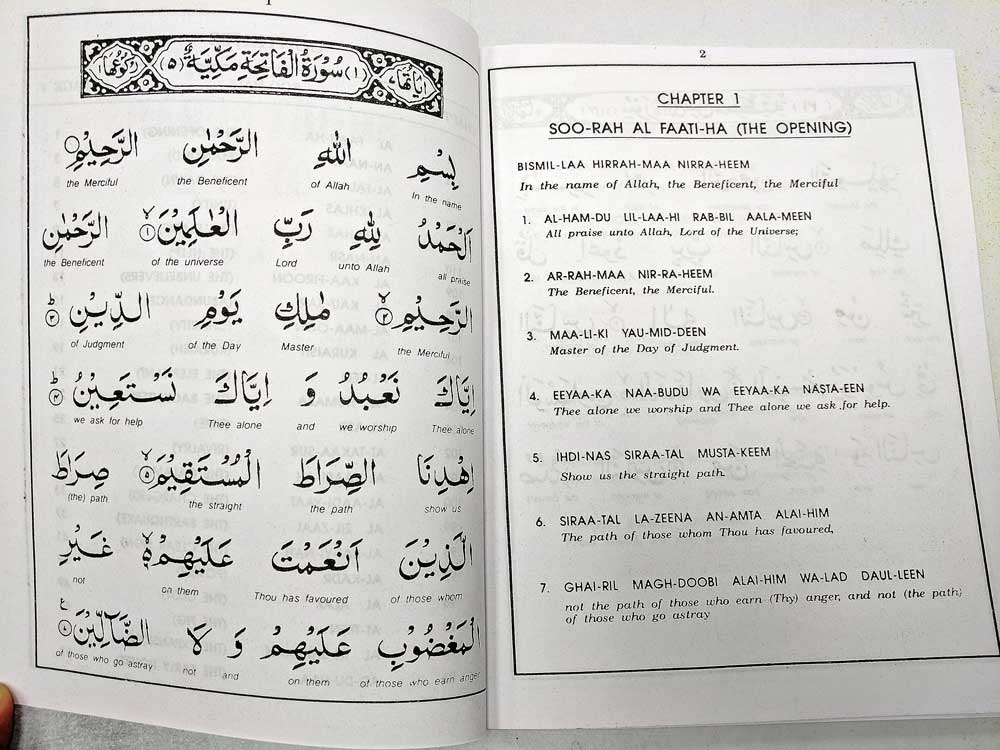 اٰيَاتُهَا ٧ (١) سُوْرَةُ الْفَاتِحَةِ مَكِّيَّةٌ (٥) رُكُوْعُهَا ١
بِسْمِ اللهِ الرَّحْمٰنِ الرَّحِيْمِ
In the name of Allah the Beneficent the Merciful
اَلْحَمْدُ لِلهِ رَبِّ الْعٰلَمِيْنَ ١ الرَّحْمٰنِ
all praise unto Allah Lord of the universe the Beneficent
الرَّحِيْمِ ٢ مٰلِكِ يَوْمِ الدِّيْنِ ٣
the Merciful Master of the Day of Judgment
اِيَّاكَ نَعْبُدُ وَ اِيَّاكَ نَسْتَعِيْنُ ٤
Thee alone we worship and Thee alone we ask for help
اِهْدِنَا الصِّرَاطَ الْمُسْتَقِيْمَ ٥ صِرَاطَ
show us the path the straight (the) path
الَّذِيْنَ اَنْعَمْتَ عَلَيْهِمْ ٦ غَيْرِ
of those whom Thou has favoured on them not
الْمَغْضُوْبِ عَلَيْهِمْ وَ لَا الضَّآلِّيْنَ
of those who earn anger on them and not of those who go astray
2
CHAPTER 1
SOO-RAH AL FAATI-HA (THE OPENING)
BISMIL-LAA HIRRAH-MAA NIRRA-HEEM
In the name of Allah, the Beneficent, the Merciful
1. AL-HAM-DU LIL-LAA-HI RAB-BIL AALA-MEEN
All praise unto Allah, Lord of the Universe;
2. AR-RAH-MAA NIR-RA-HEEM
The Beneficent, the Merciful.
3. MAA-LI-KI YAU-MID-DEEN
Master of the Day of Judgment.
4. EEYAA-KA NAA-BUDU WA EEYAA-KA NASTA-EEN
Thee alone we worship and Thee alone we ask for help.
5. IHDI-NAS SIRAA-TAL MUSTA-KEEM
Show us the straight path.
6. SIRAA-TAL LA-ZEENA AN-AMTA ALAI-HIM
The path of those whom Thou has favoured,
7. GHAI-RIL MAGH-DOOBI ALAI-HIM WA-LAD DAUL-LEEN
not the path of those who earn (Thy) anger, and not (the path)
of those who go astray